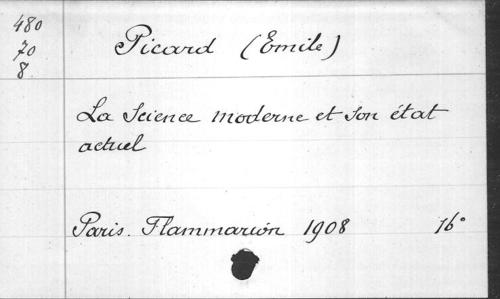 480
70
8
Picard (Emile)
La Science moderne et son état
actuel
Paris. Flammarion 1908 16°